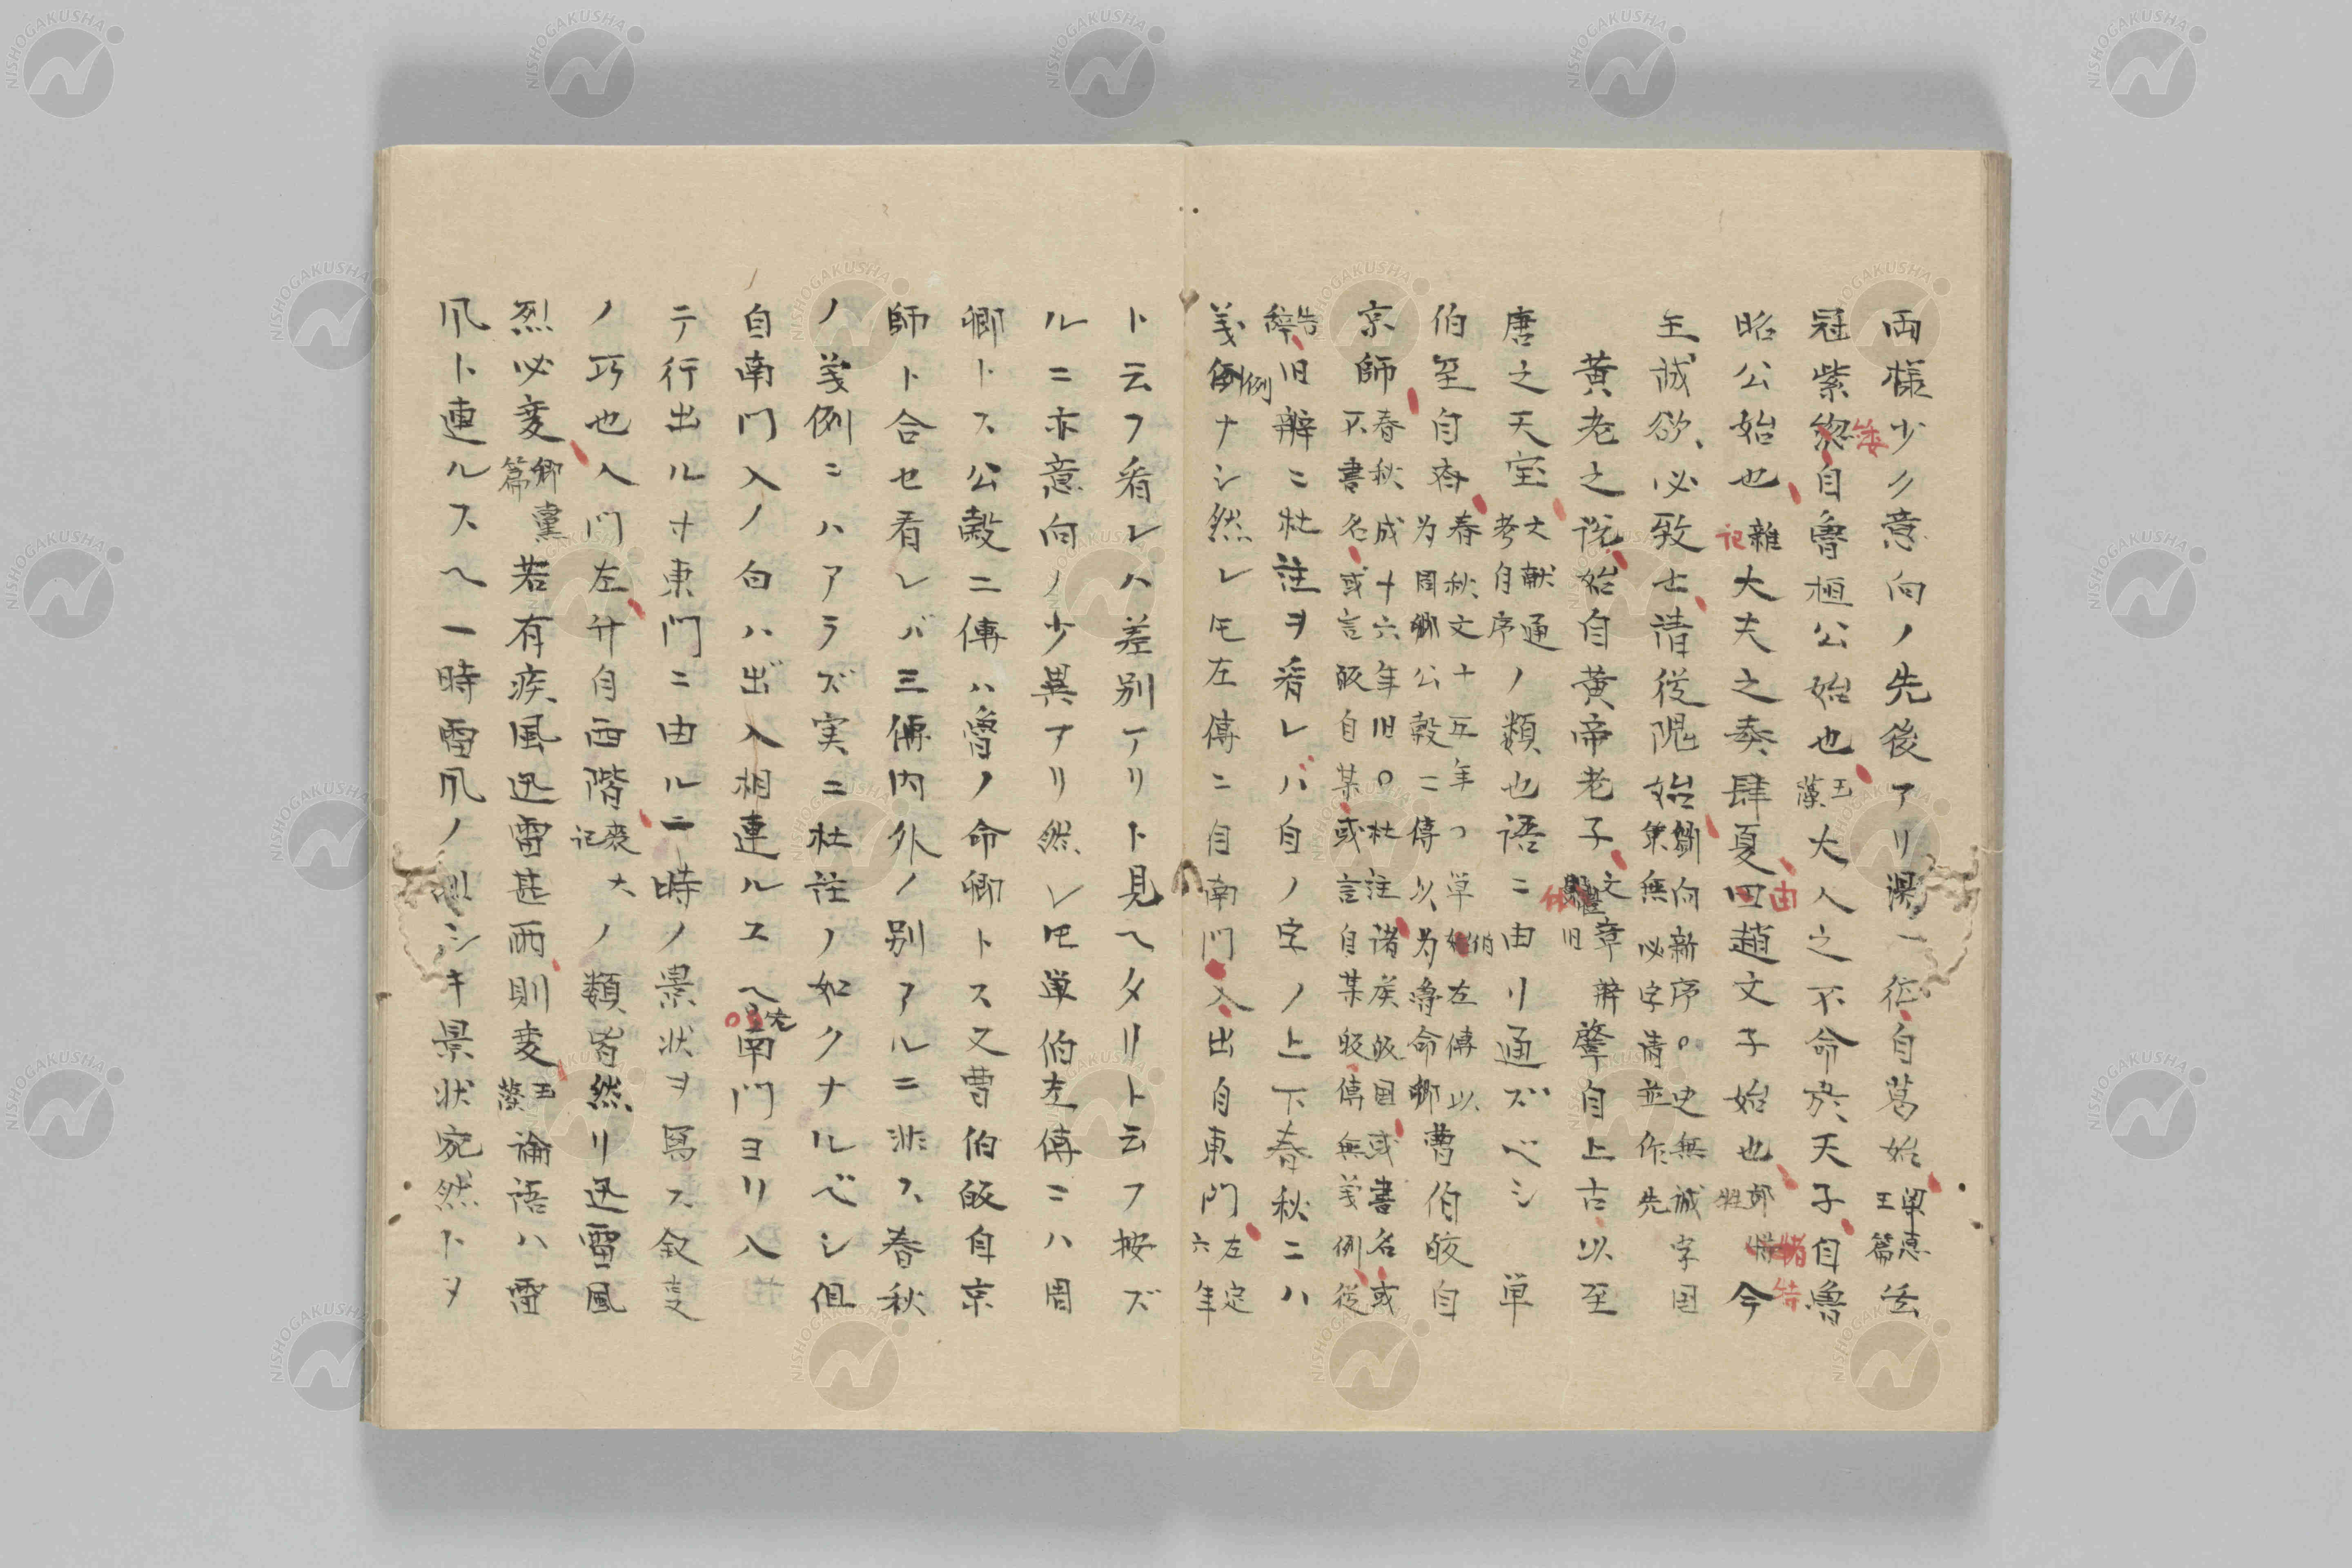 両様少ク意向ノ先後アリ湯一征自葛始梁惠王篇玄
冠紫緌自魯桓公始也玉藻大夫之不命於天子自魯
昭公始也雜記大夫之奏肆夏由趙文子始也郊特牲今
王誠欲必致士請從隗始劉向新序○史無誠字国策無必字請並作先
黄老之説始自黄帝老子文章辨肇自上古以至
唐之天宝文献通考自序ノ類也語ニ由リ通ズベシ 単
伯至自斉春秋文十五年○単伯左傳以為周卿公穀二傳以為魯命卿曹伯皈自
京師春秋成十六年旧○杜注諸侯皈国或書名或不書名或言皈自某或言自某皈傳無義例從
告辞旧辨ニ杜註ヲ看レバ自ノ字ノ上下春秋ニハ
義例ナシ然レ𪜈左傳ニ自南門入出自東門左定六年
ト云フ看レハ差別アリト見ヘタリト云フ按ズ
ルニ亦意向ノ少異アリ然レ𪜈単伯左傳ニハ周
卿トス公穀二傳ハ魯ノ命卿トス又曹伯皈自京
師ト合セ看レバ三傳内外ノ別アルニ非ス春秋
ノ義例ニハアラズ実ニ杜註ノ如クナルベシ但
自南門入ノ自ハ出入相連ルユヘ先南門ヨリ入
テ行出ルオ東門ニ由ル一時ノ景状ヲ冩ス叙事
ノ巧也入門左升自西階喪大記ノ類皆然リ迅雷風
烈必変郷黨篇若有疾風迅雷甚雨則変玉藻論語ハ雷
凬ト連ルスヘ一時雷凬ノ烈シキ景状宛然トヲ